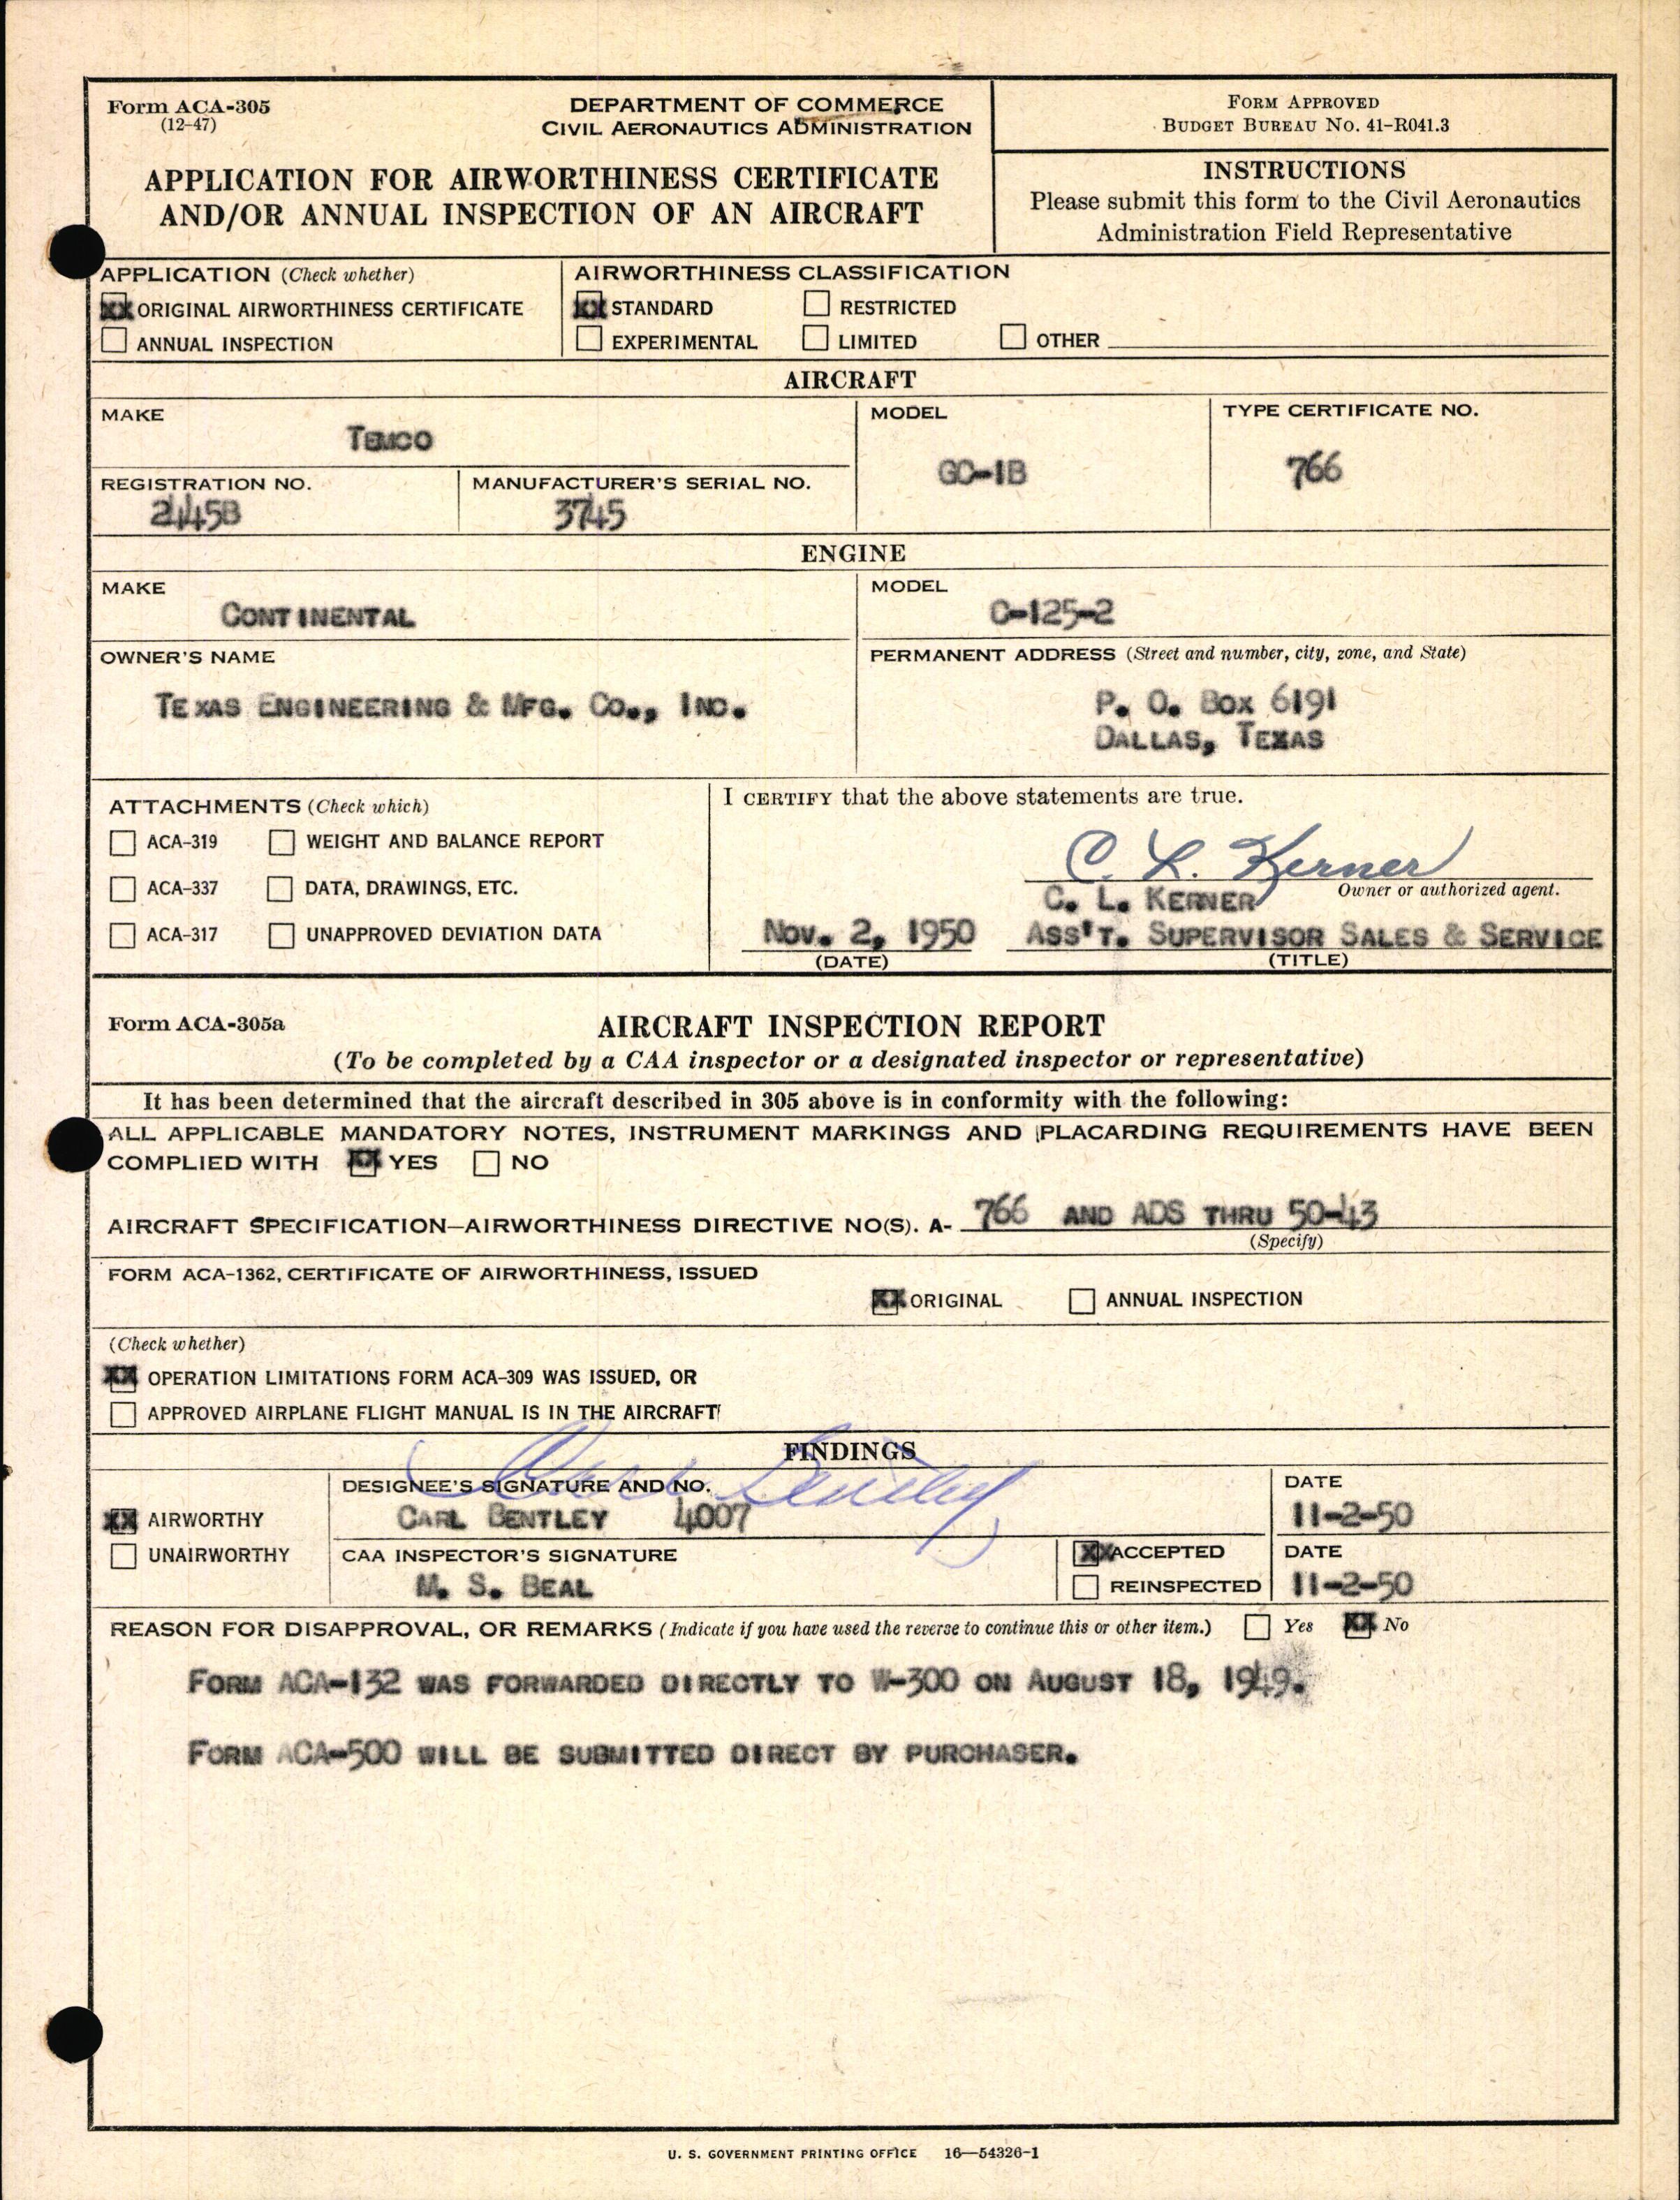 Form ACA-305
(12-47)
DEPARTMENT OF COMMERCE
CIVIL AERONAUTICS ADMINISTRATION
APPLICATION FOR AIRWORTHINESS CERTIFICATE
AND/OR ANNUAL INSPECTION OF AN AIRCRAFT
FORM APPROVED
BUDGET BUREAU NO. 41-R041.3
INSTRUCTIONS
Please submit this form to the Civil Aeronautics
Administration Field Representative
APPLICATION (Check whether)
XX ORIGINAL AIRWORTHINESS CERTIFICATE
ANNUAL INSPECTION
AIRWORTHINESS CLASSIFICATION
XX STANDARD RESTRICTED
EXPERIMENTAL LIMITED OTHER
AIRCRAFT
MAKE
TEMCO
MODEL
GC-1B
TYPE CERTIFICATE NO.
766
REGISTRATION NO.
2445B
MANUFACTURER'S SERIAL NO.
3745
ENGINE
MAKE
CONTINENTAL
MODEL
C-125-2
OWNER'S NAME
TEXAS ENGINEERING & MFG. CO., INC.
PERMANENT ADDRESS (Street and number, city, zone, and State)
P. O. BOX 6191
DALLAS, TEXAS
ATTACHMENTS (Check which)
ACA-319 WEIGHT AND BALANCE REPORT
ACA-337 DATA, DRAWINGS, ETC.
ACA-317 UNAPPROVED DEVIATION DATA
I CERTIFY that the above statements are true.
C. L. Kerner
C. L. KERNER Owner or authorized agent.
NOV. 2, 1950 ASS'T. SUPERVISOR SALES & SERVICE
(DATE) (TITLE)
Form ACA-305a
AIRCRAFT INSPECTION REPORT
(To be completed by a CAA inspector or a designated inspector or representative)
It has been determined that the aircraft described in 305 above is in conformity with the following:
ALL APPLICABLE MANDATORY NOTES, INSTRUMENT MARKINGS AND PLACARDING REQUIREMENTS HAVE BEEN
COMPLIED WITH XX YES NO
AIRCRAFT SPECIFICATION—AIRWORTHINESS DIRECTIVE NO(S). A- 766 AND ADS THRU 50-43
(Specify)
FORM ACA-1362, CERTIFICATE OF AIRWORTHINESS, ISSUED
XX ORIGINAL ANNUAL INSPECTION
(Check whether)
XX OPERATION LIMITATIONS FORM ACA-309 WAS ISSUED, OR
APPROVED AIRPLANE FLIGHT MANUAL IS IN THE AIRCRAFT
FINDINGS
XX AIRWORTHY
UNAIRWORTHY
DESIGNEE'S SIGNATURE AND NO.
Carl Bentley
CARL BENTLEY 4007
DATE
11-2-50
CAA INSPECTOR'S SIGNATURE
M. S. BEAL
XX ACCEPTED
REINSPECTED
DATE
11-2-50
REASON FOR DISAPPROVAL, OR REMARKS (Indicate if you have used the reverse to continue this or other item.) Yes XX No
FORM ACA-132 WAS FORWARDED DIRECTLY TO W-300 ON AUGUST 18, 1949.
FORM ACA-500 WILL BE SUBMITTED DIRECT BY PURCHASER.
U. S. GOVERNMENT PRINTING OFFICE 16—54326-1